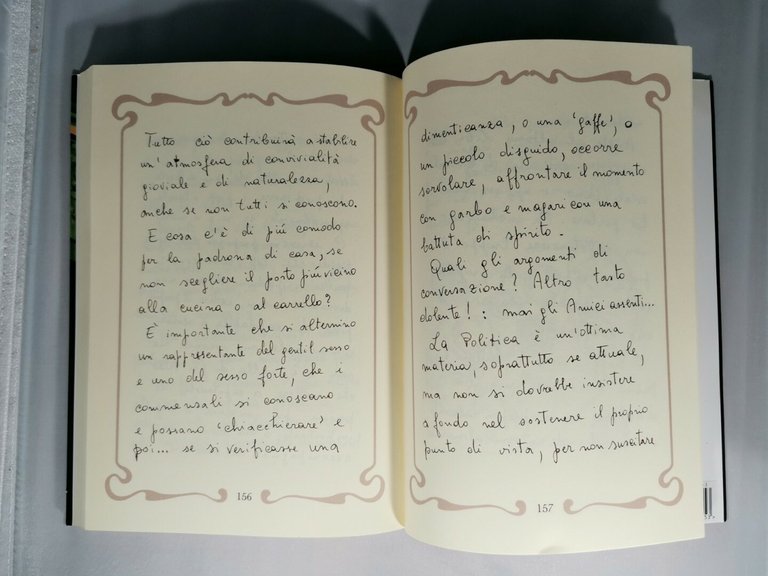 Tutto ciò contribuirà a stabilire
un'atmosfera di convivialità
gioviale e di naturalezza,
anche se non tutti si conoscono.
E cosa c'è di piú comodo
per la padrona di casa, se
non scegliere il posto piú vicino
alla cucina o al carrello?
È importante che si alternino
un rappresentante del gentil sesso
e uno del sesso forte, che i
commensali si conoscano
e possano 'chiacchierare' e
poi... se si verificasse una
156
dimenticanza, o una 'gaffe', o
un piccolo disguido, occorre
sorvolare, affrontare il momento
con garbo e magari con una
battuta di spirito.
Quali gli argomenti di
conversazione? Altro tasto
dolente! : mai gli Amici assenti...
La Politica è un'ottima
materia, soprattutto se attuale,
ma non si dovrebbe insistere
a fondo nel sostenere il proprio
punto di vista, per non suscitare
157